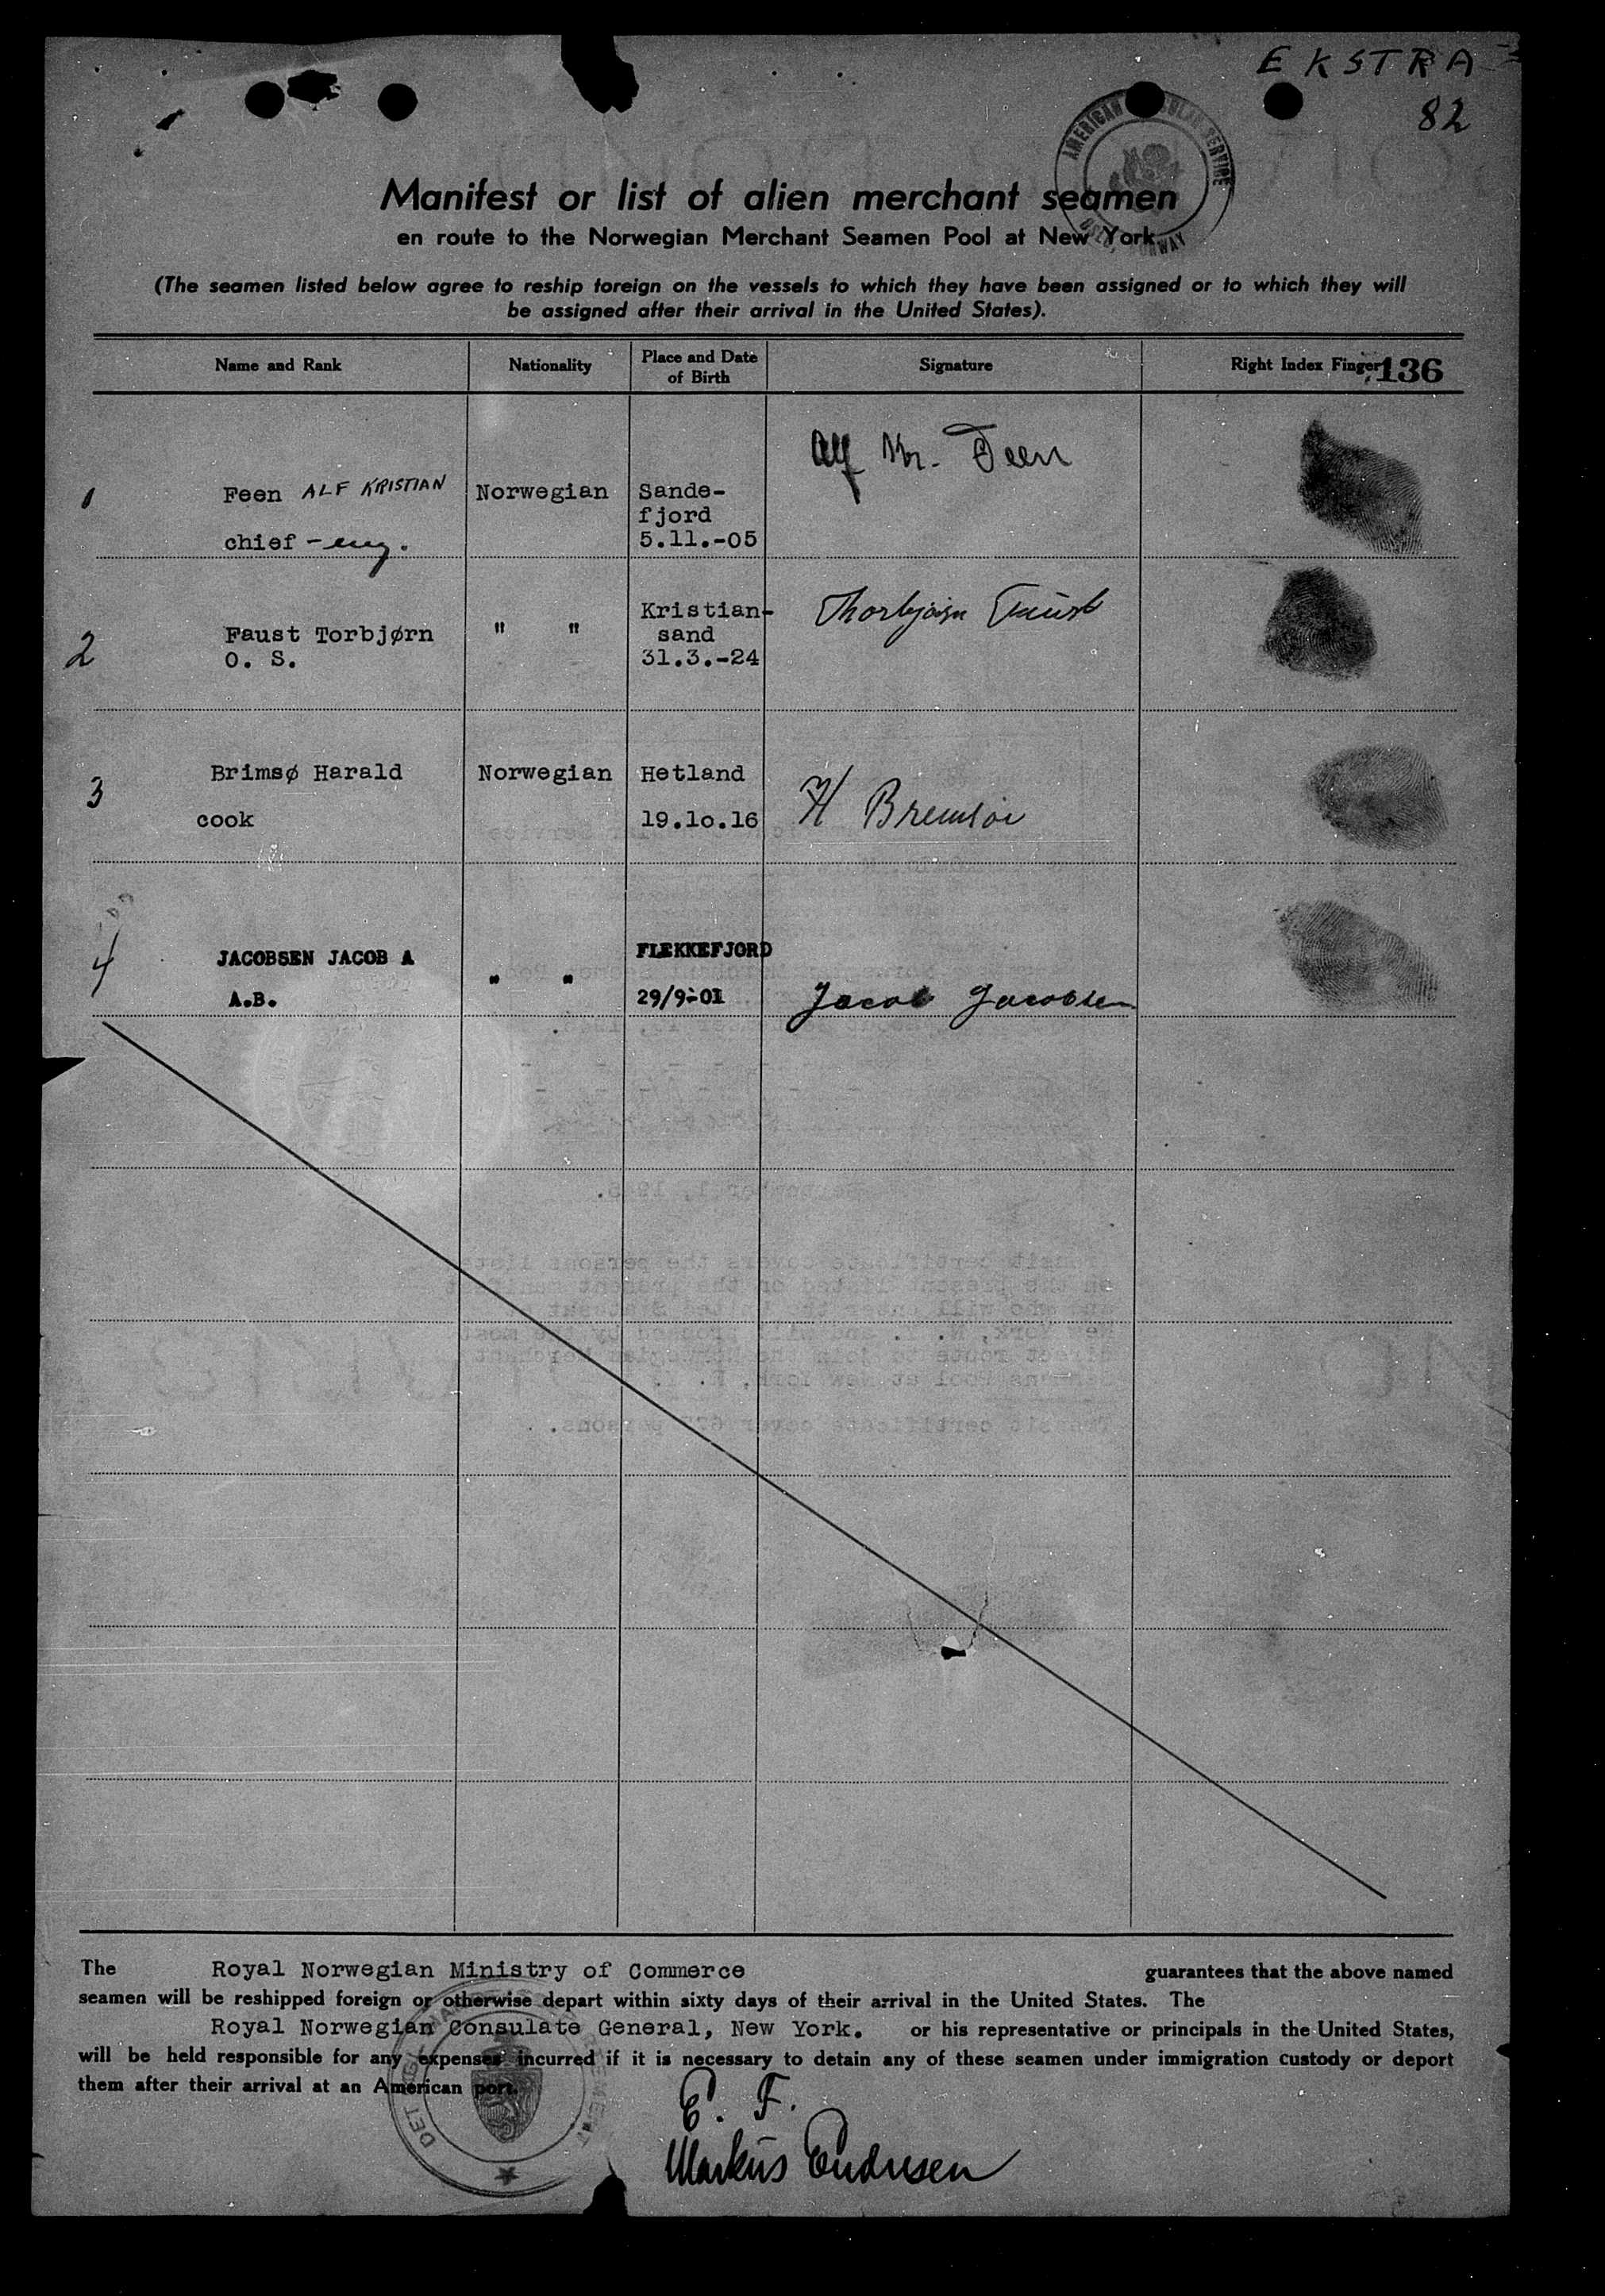 EKSTRA
82
AMERICAN CONSULAR SERVICE
OSLO, NORWAY
Manifest or list of alien merchant seamen
en route to the Norwegian Merchant Seamen Pool at New York
(The seamen listed below agree to reship foreign on the vessels to which they have been assigned or to which they will
be assigned after their arrival in the United States).
Name and Rank Nationality Place and Date of Birth Signature Right Index Finger 136
1 Feen ALF KRISTIAN Norwegian Sande-
fjord
chief - eng. 5.11.-05
Alf Kr. Feen
2 Faust Torbjørn " " Kristian-
sand
O. S. 31.3.-24
Thorbjørn Faust
3 Brimsø Harald Norwegian Hetland
cook 19.1o.16
H
4 JACOBSEN JACOB A " " FLEKKEFJORD
A.B. 29/9-01
Jacob Jacobsen
The Royal Norwegian Ministry of Commerce guarantees that the above named
seamen will be reshipped foreign or otherwise depart within sixty days of their arrival in the United States. The
Royal Norwegian Consulate General, New York. or his representative or principals in the United States,
will be held responsible for any expenses incurred if it is necessary to detain any of these seamen under immigration custody or deport
them after their arrival at an American port.
E. F.
Markus Endresen